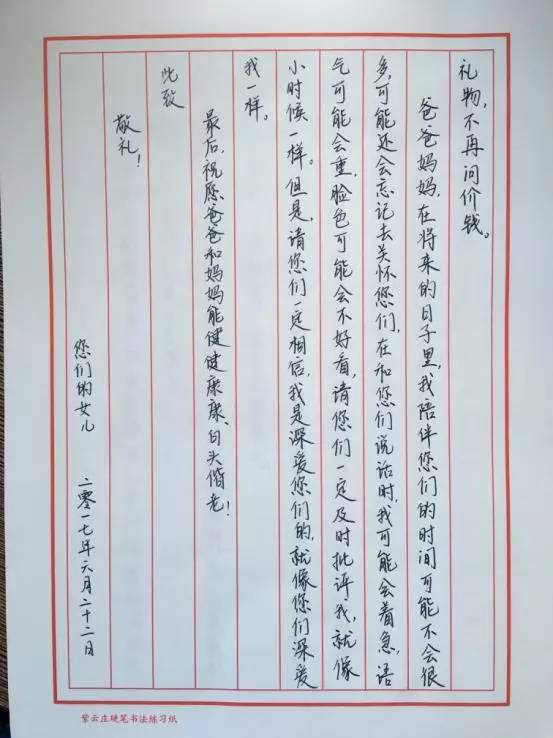 礼物，不再问价钱。
爸爸妈妈，在将来的日子里，我陪伴您们的时间可能不会很
多，可能还会忘记去关怀您们，在和您们说话时，我可能会着急，语
气可能会重，脸色可能会不好看，请您们一定及时批评我，就像
小时候一样。但是，请您们一定相信，我是深爱您们的，就像您们深爱
我一样。
最后，祝愿爸爸和妈妈能健健康康、白头偕老！
此致
敬礼！
您们的女儿 二零一七年六月二十二日
紫云庄硬笔书法练习纸